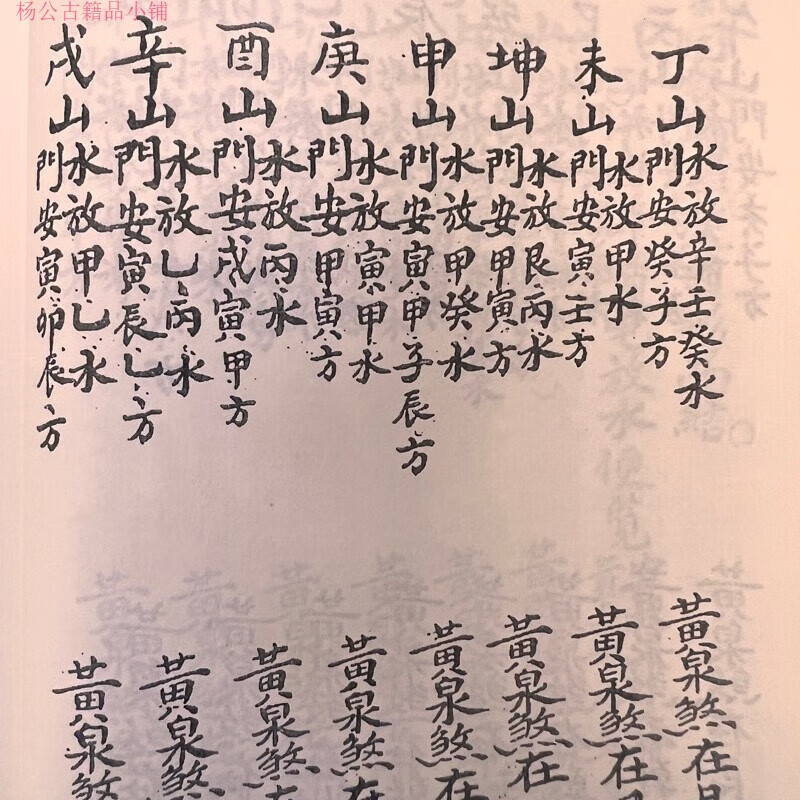 杨公古籍品小铺
丁山
水放辛壬癸水
門安癸子方
黃泉煞在
未山
水放甲水
門安寅壬方
黃泉煞在
坤山
水放艮丙水
門安甲寅方
黃泉煞在
申山
水放甲癸水
門安寅甲子辰方
黃泉煞在
庚山
水放寅甲水
門安甲寅方
黃泉煞在
酉山
水放丙水
門安戌寅甲方
黃泉煞
辛山
水放乙丙水
門安寅辰乙方
黃泉煞
戌山
水放甲乙水
門安寅卯辰方
黃泉煞